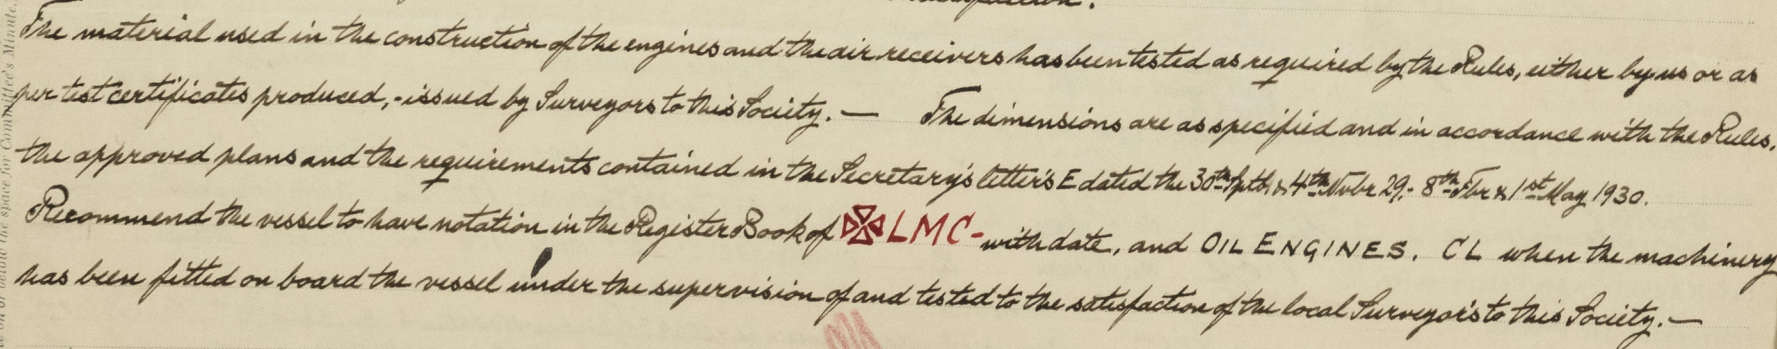 The material used in the construction of the engines and the air receivers has been tested as required by the Rules, either by us or as
per test certificates produced, - issued by Surveyors to this Society. — The dimensions are as specified and in accordance with the Rules,
the approved plans and the requirements contained in the Secretary's letter's E dated the 30th Spth & 4th Nvbr 29, - 8th Fbr & 1st May 1930.
Recommend the vessel to have notation in the Register Book of ✠ LMC - with date, and OIL ENGINES. CL when the machinery
has been fitted on board the vessel under the supervision of and tested to the satisfaction of the local Surveyors to this Society. —
the space for Committee's Minute.